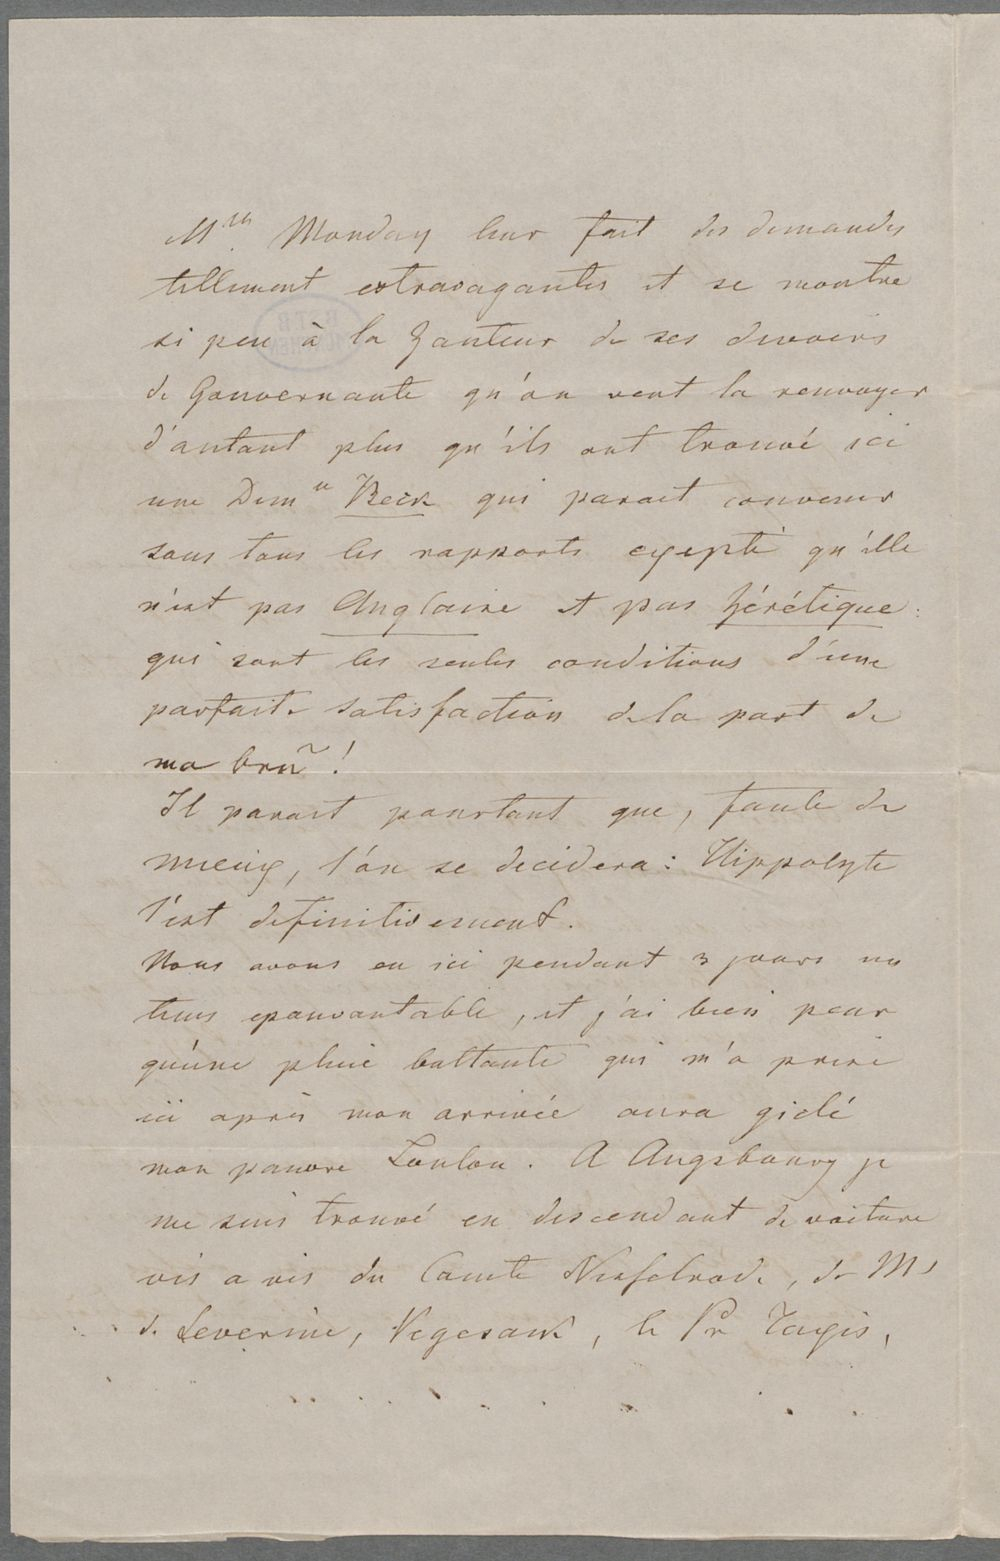 M^rs Monday leur fait des demandes
tellement extravagantes et se montre
si peu à la hauteur de ses devoirs
de Gouvernante qu'on veut la renvoyer
d'autant plus qu'ils ont trouvé ici
une Dem^lle Beck qui parait convenir
sous tous les rapports excepté qu'elle
n'est pas Anglaise et pas hérétique:
qui sont les seules conditions d'une
parfaite satisfaction de la part de
ma bru!
Il parait pourtant que, faute de
mieux, l'on se decidera: Hippolyte
l'est definitivement.
Nous avons eu ici pendant 3 jours un
tems epouvantable, et j'ai bien peur
qu'une pluie battante qui m'a prise
ici après mon arrivée aura
mon pauvre Loulou. A Augsbourg je
me suis trouvé en descendant de voiture
vis a vis du Comte Nesselrode, de Mr
de Severine, Vegesack, le Pr Taxis,